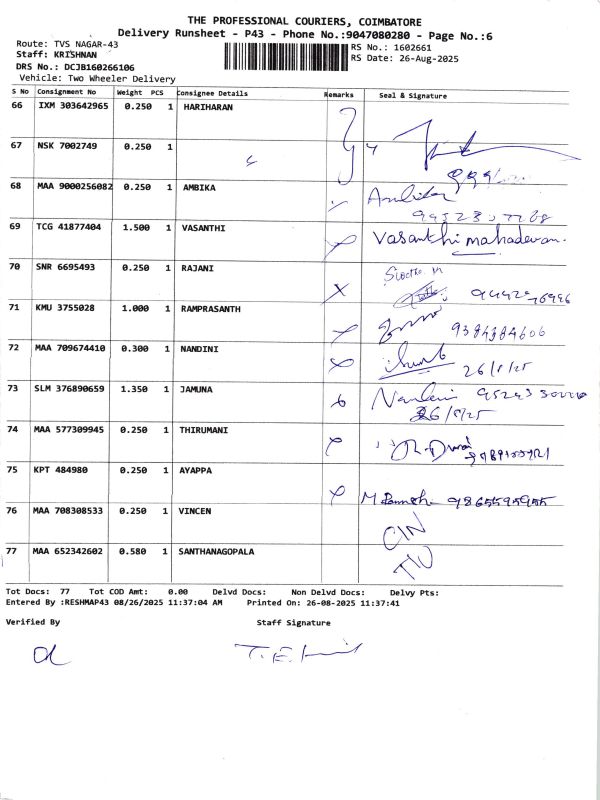 THE PROFESSIONAL COURIERS, COIMBATORE
Delivery Runsheet - P43 - Phone No.:9047080280 - Page No.:6
Route: TVS NAGAR-43
RS No.: 1602661
Staff: KRISHNAN
RS Date: 26-Aug-2025
DRS No.: DCJB160266106
Vehicle: Two Wheeler Delivery
S No Consignment No Weight PCS Consignee Details Remarks Seal & Signature
66 IXM 303642965 0.250 1 HARIHARAN
67 NSK 7002749 0.250 1
68 MAA 9000256082 0.250 1 AMBIKA
Ambika
69 TCG 41877404 1.500 1 VASANTHI
Vasanthi mahadevan.
70 SNR 6695493 0.250 1 RAJANI
71 KMU 3755028 1.000 1 RAMPRASANTH
9384384606
72 MAA 709674410 0.300 1 NANDINI
26/8/25
73 SLM 376890659 1.350 1 JAMUNA
26/8/25
74 MAA 577309945 0.250 1 THIRUMANI
75 KPT 484980 0.250 1 AYAPPA
9865595955
76 MAA 708308533 0.250 1 VINCEN
CIN
77 MAA 652342602 0.580 1 SANTHANAGOPALA
Tot Docs: 77 Tot COD Amt: 0.00 Delvd Docs: Non Delvd Docs: Delvy Pts:
Entered By :RESHMAP43 08/26/2025 11:37:04 AM Printed On: 26-08-2025 11:37:41
Verified By Staff Signature